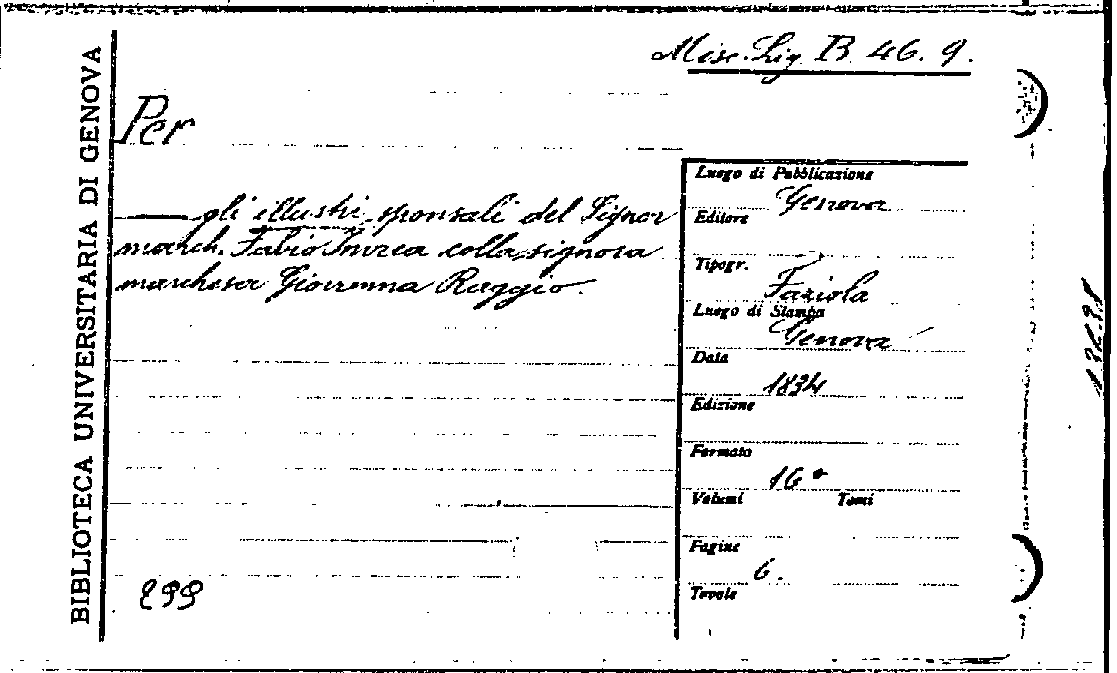 Misc. Lig. B 46. 9.
BIBLIOTECA UNIVERSITARIA DI GENOVA
Per
gli illustri sponsali del Signor
march. Fabio Invrea colla signora
marchesa Giovanna Raggio.
Luogo di Pubblicazione
Genova
Editore
Tipogr.
Faziola
Luogo di Stampa
Genova
Data
1834
Edizione
Formato
16°
Volumi Tomi
Pagine
6.
Tavole
299